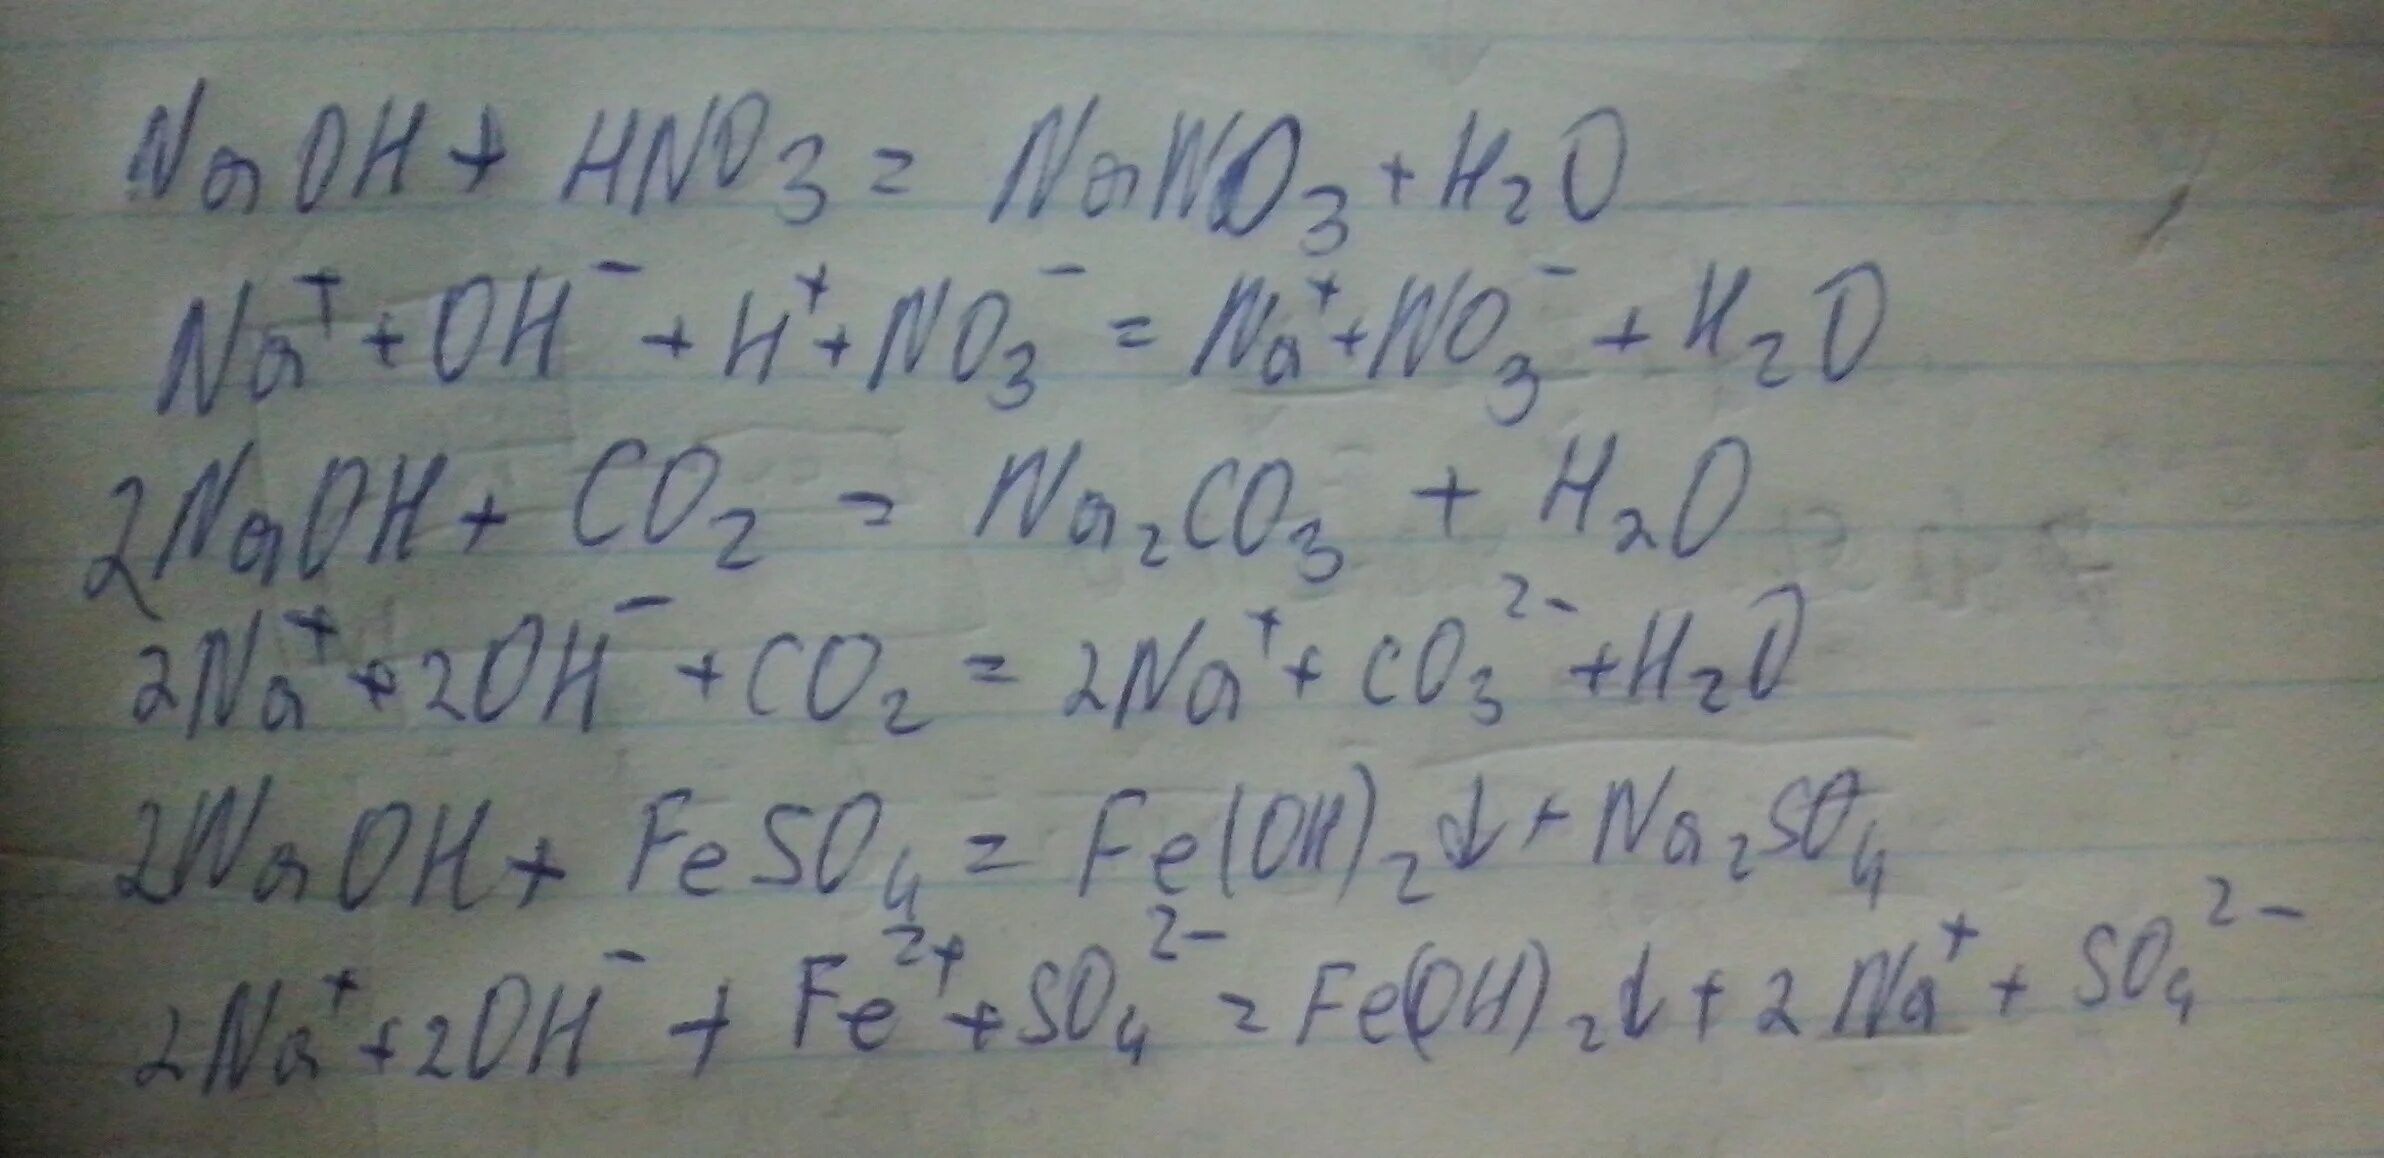 NaOH + HNO₃ = NaNO₃ + H₂O
Na⁺ + OH⁻ + H⁺ + NO₃⁻ = Na⁺ + NO₃⁻ + H₂O
2NaOH + CO₂ = Na₂CO₃ + H₂O
2Na⁺ + 2OH⁻ + CO₂ = 2Na⁺ + CO₃²⁻ + H₂O
2NaOH + FeSO₄ = Fe(OH)₂↓ + Na₂SO₄
2Na⁺ + 2OH⁻ + Fe²⁺ + SO₄²⁻ = Fe(OH)₂↓ + 2Na⁺ + SO₄²⁻